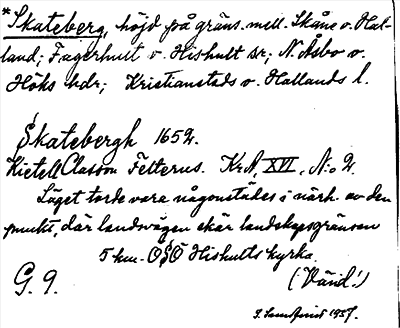 *Skateberg, höjd på gräns. mell. Skåne o. Hal-
land; Fagerhult o. Hishult sr; N. Åsbo o.
Höks hdr; Kristianstads o. Hallands l.
Skatebergh 1652.
Kietell Classon Felterus. KrA, XVI, N:o 2.
Läget torde vara någonstädes i närh. av den
punkt, där landsvägen skär landskapsgränsen
5 km. OSO Hishults kyrka.
G. 9. (Vänd!)
1957.